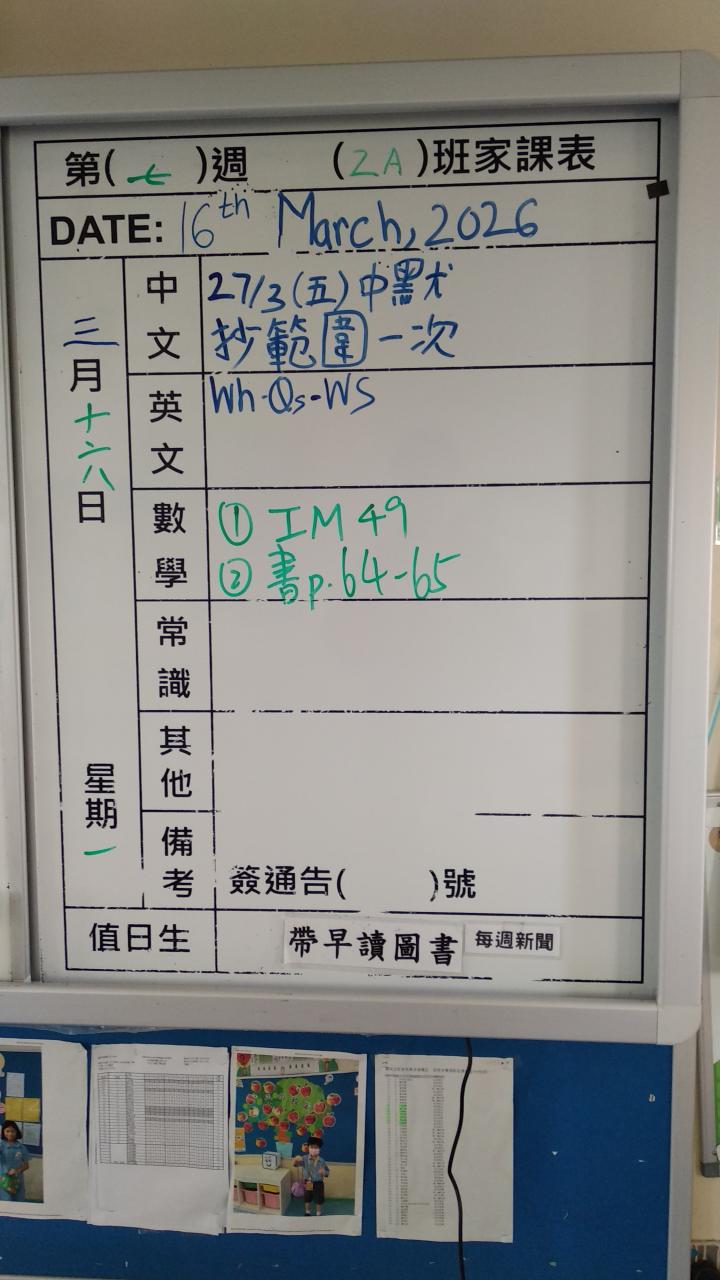 第(七)週 (2A)班家課表
DATE: 16th March, 2026
三月十六日 星期一
中文 27/3(五)中默
抄範圍一次
英文 Wh-Qs-WS
數學 ① IM 49
② 書p.64-65
常識
其他
備考 簽通告( )號
值日生 帶早讀圖書 每週新聞